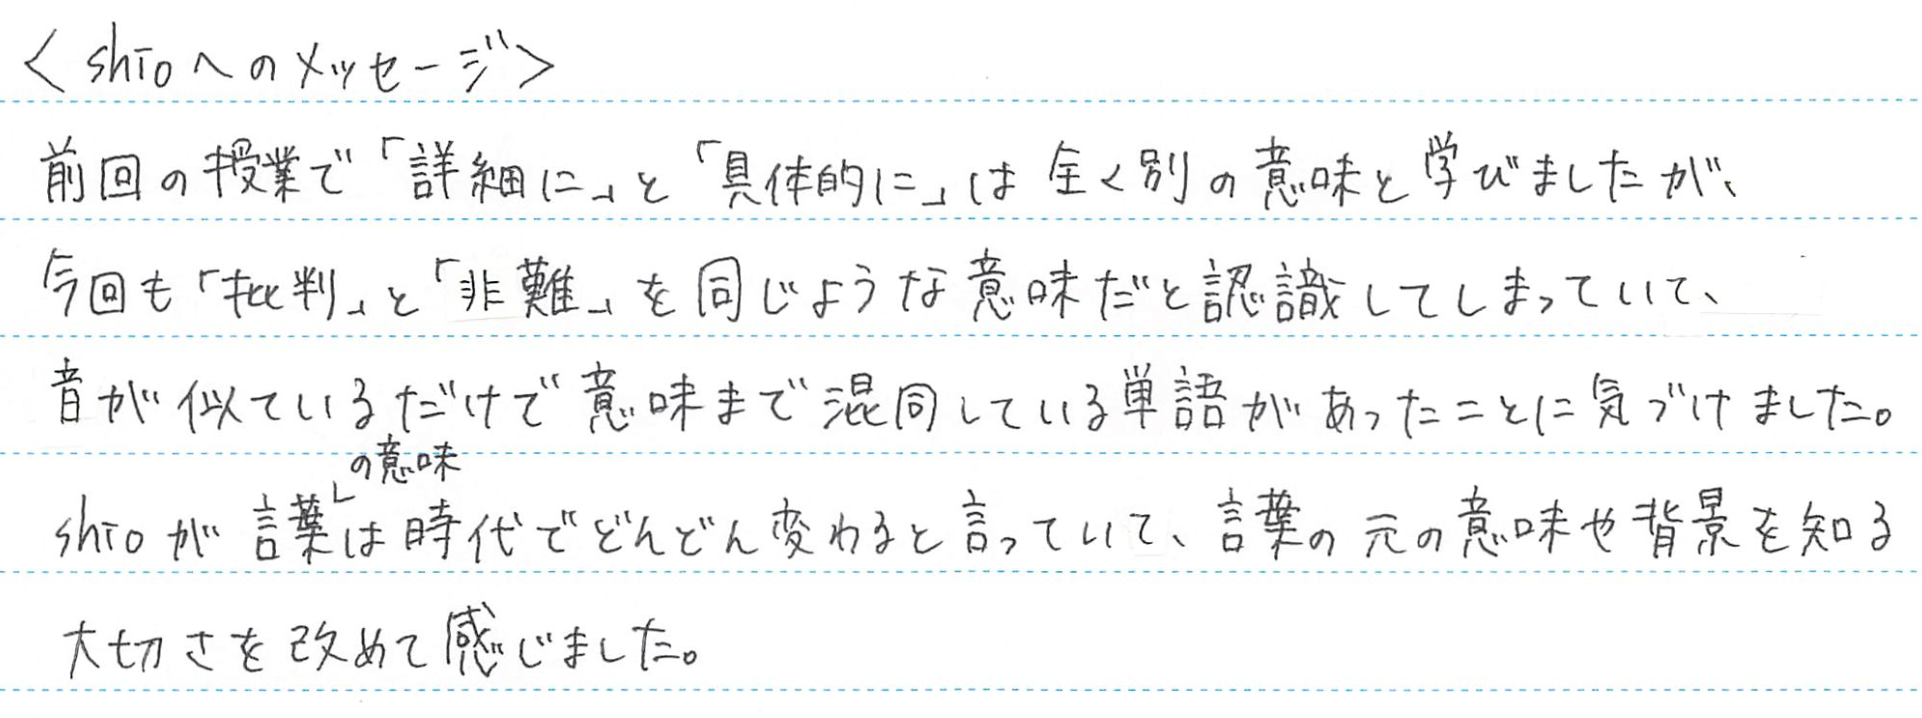 ＜shioへのメッセージ＞
前回の授業で「詳細に」と「具体的に」は全く別の意味と学びましたが、
今回も「批判」と「非難」を同じような意味だと認識してしまっていて、
音が似ているだけで意味まで混同している単語があったことに気づけました。
shioが言葉の意味は時代でどんどん変わると言っていて、言葉の元の意味や背景を知る
大切さを改めて感じました。